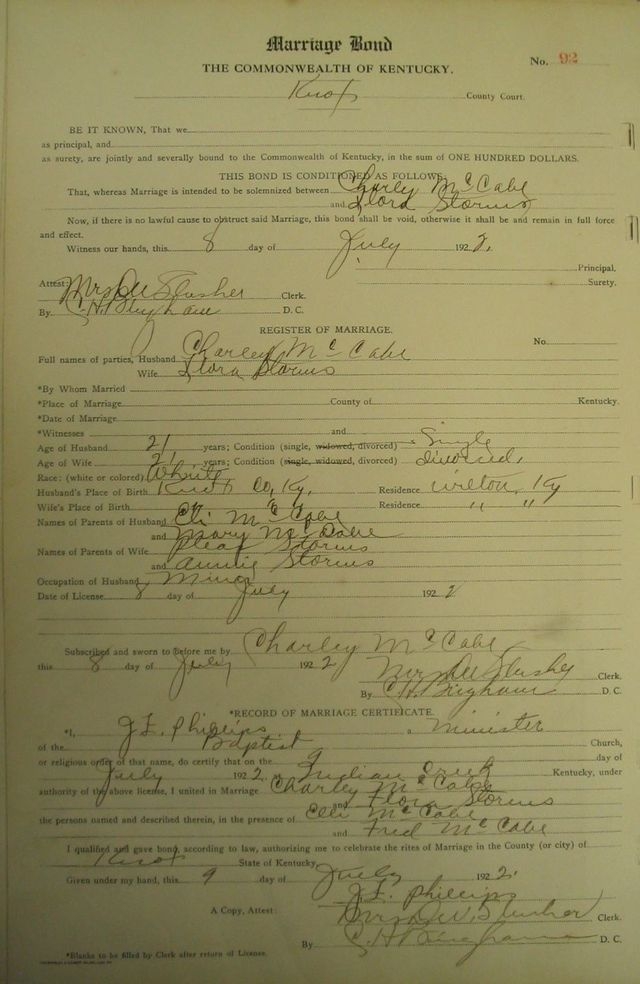 Marriage Bond
No. 92
THE COMMONWEALTH OF KENTUCKY.
Knox County Court.
BE IT KNOWN, That we
as principal, and
as surety, are jointly and severally bound to the Commonwealth of Kentucky, in the sum of ONE HUNDRED DOLLARS.
THIS BOND IS CONDITIONED AS FOLLOWS:
That, whereas Marriage is intended to be solemnized between Charley McCabe
and Flora Storms
Now, if there is no lawful cause to obstruct said Marriage, this bond shall be void, otherwise it shall be and remain in full force
and effect.
Witness our hands, this 8 day of July 1922.
Principal.
Surety.
Attest: Mrs Slusher Clerk.
By C. H. Bingham D. C.
REGISTER OF MARRIAGE.
No.
Full names of parties, Husband Charley McCabe
Wife Flora Storms
*By Whom Married
*Place of Marriage County of Kentucky.
*Date of Marriage
*Witnesses and
Age of Husband 21 years; Condition (single, widowed, divorced) Single
Age of Wife 21 years; Condition (single, widowed, divorced) divorced.
Race: (white or colored) White
Husband's Place of Birth Knox Co, Ky. Residence Wilton, Ky
Wife's Place of Birth " " Residence " "
Names of Parents of Husband Eli McCabe
and Mary McCabe
Names of Parents of Wife Pleas Storms
and Annie Storms
Occupation of Husband Miner
Date of License 8 day of July 1922
Subscribed and sworn to before me by Charley McCabe
this 8 day of July 1922 Mrs Slusher Clerk.
By C. H. Bingham D. C.
*RECORD OF MARRIAGE CERTIFICATE.
*I, J. L. Phillips a Minister
of the Baptist Church,
or religious order of that name, do certify that on the 9 day of
July 1922. at Indian Creek Kentucky, under
authority of the above license, I united in Marriage Charley McCabe
and Flora Storms
the persons named and described therein, in the presence of Eli McCabe
and Fred McCabe
I qualified and gave bond, according to law, authorizing me to celebrate the rites of Marriage in the County (or city) of
Knox State of Kentucky.
Given under my hand, this 9 day of July 1922.
J. L. Phillips
A Copy, Attest: Slusher Clerk.
By C. H. Bingham D. C.
*Blanks to be filled by Clerk after return of License.